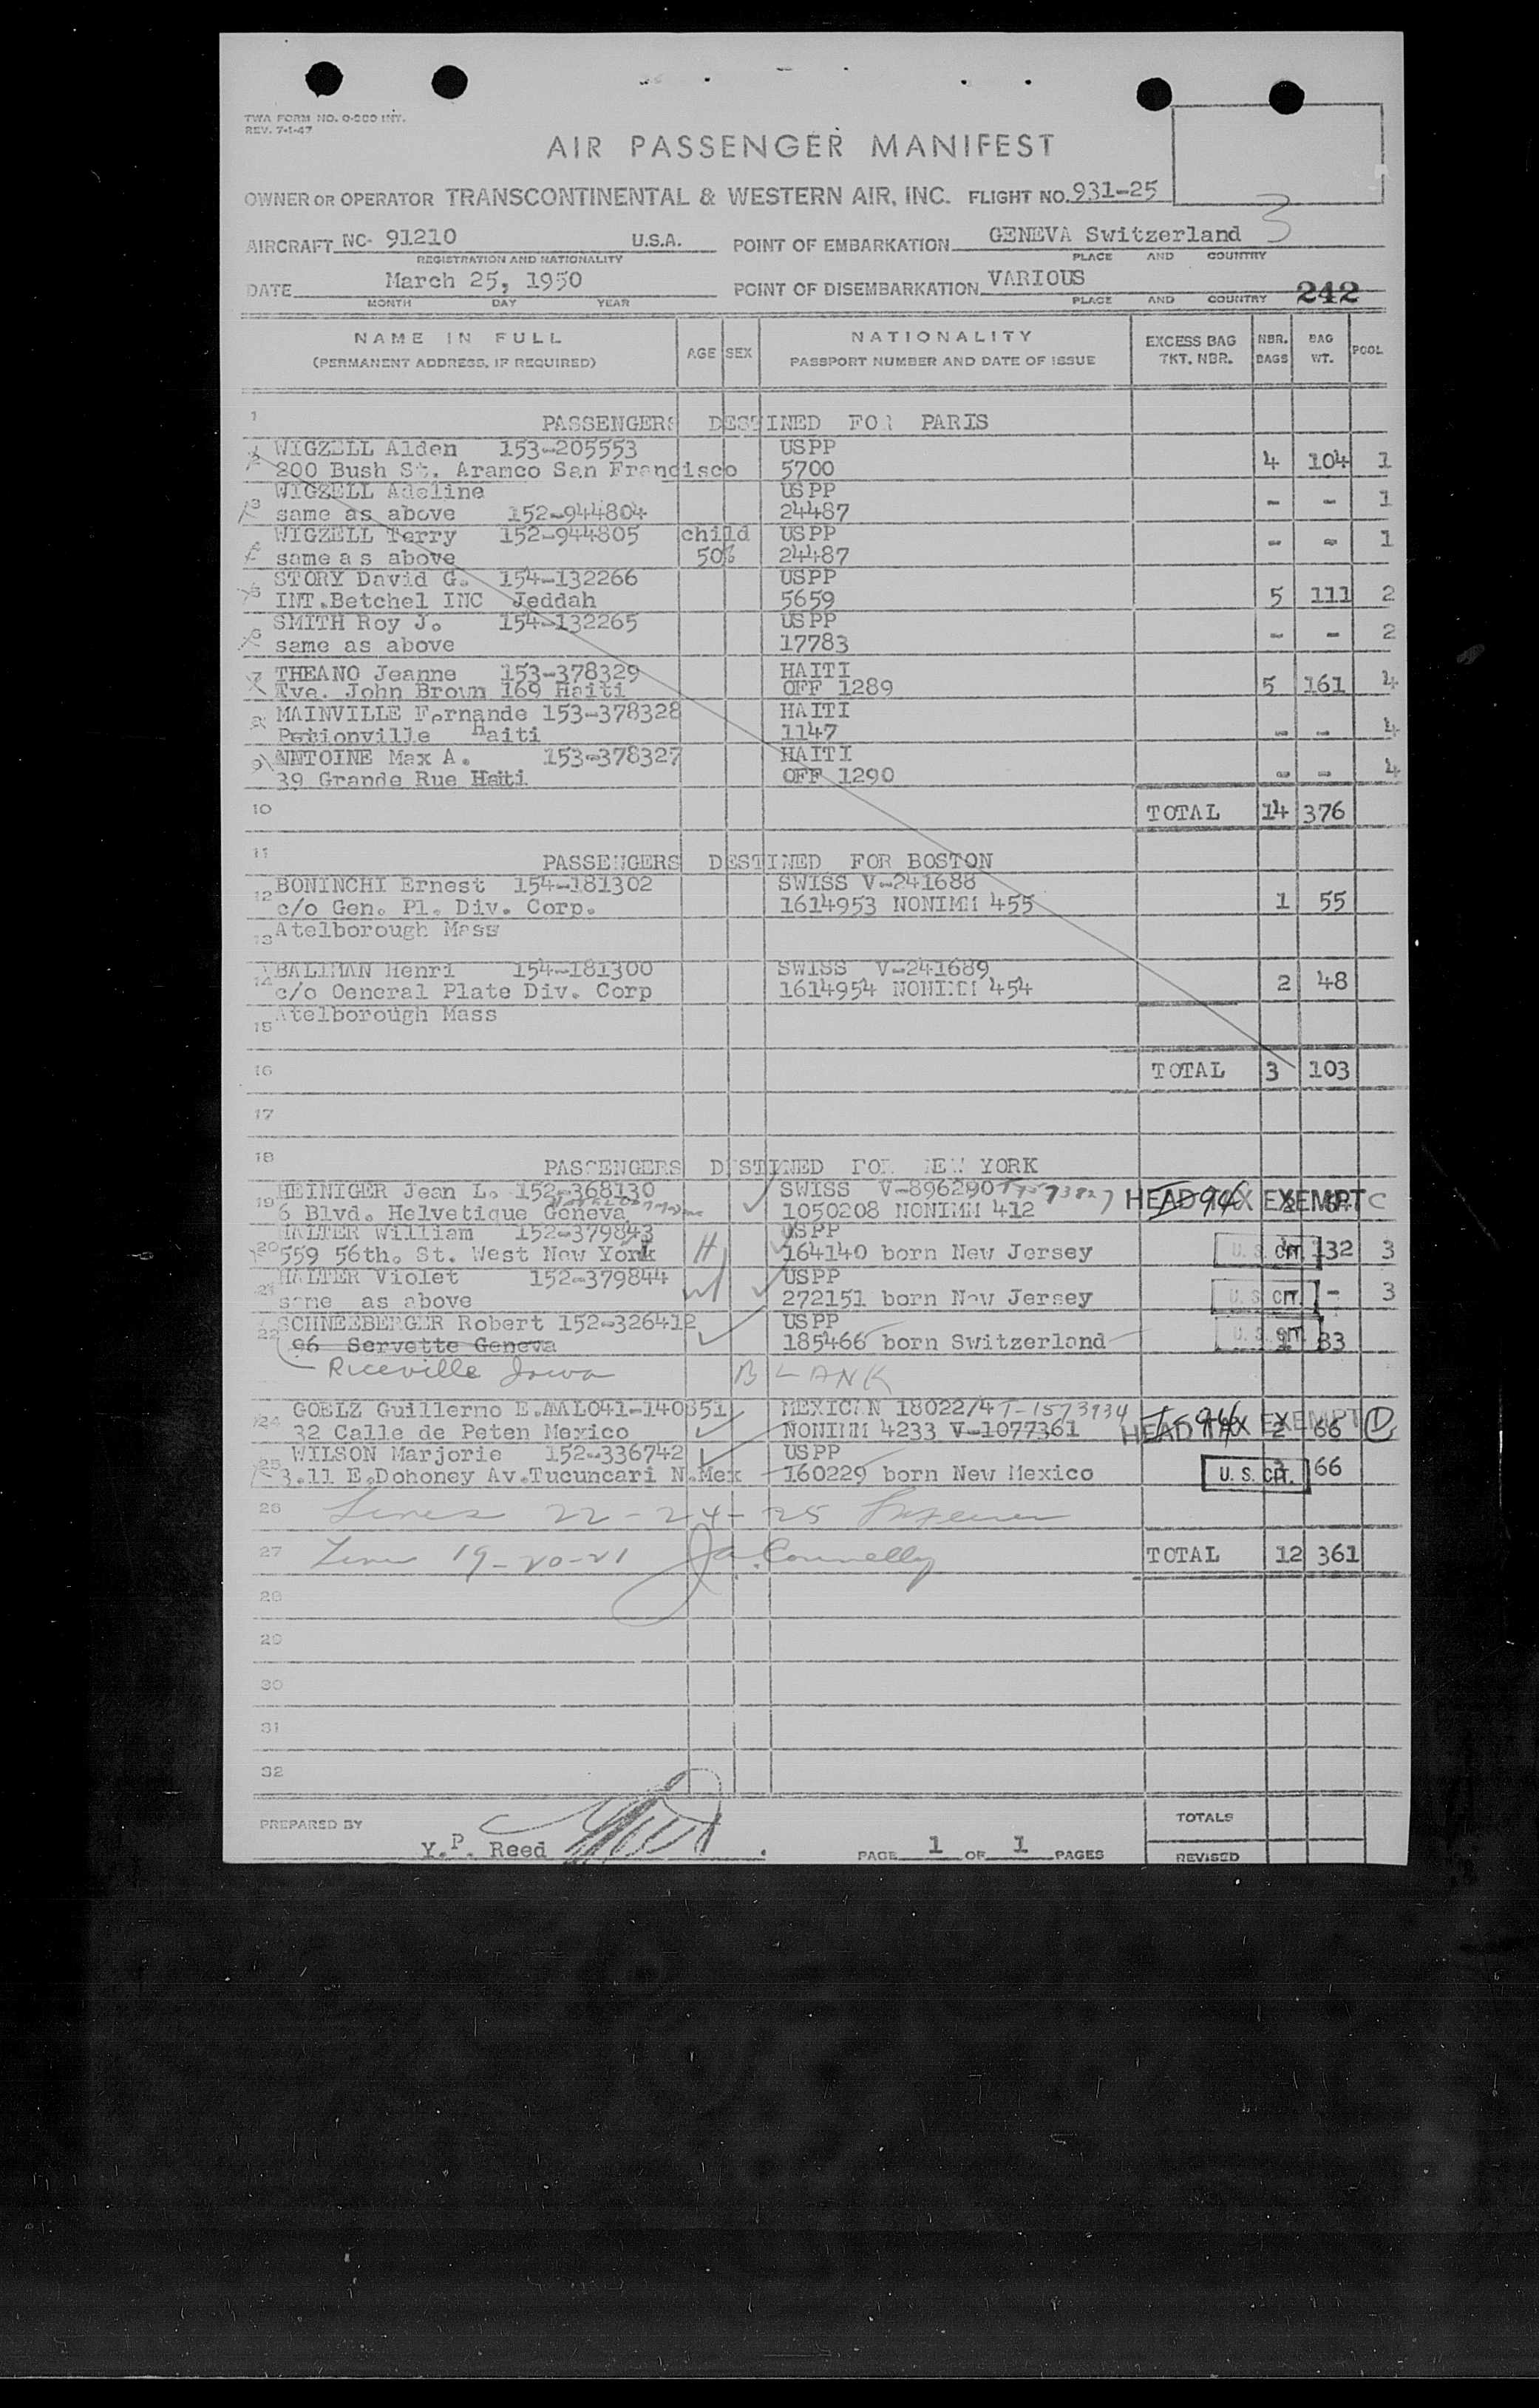 TWA FORM NO. 0-200 INT.
REV. 7-1-47
AIR PASSENGER MANIFEST
OWNER OR OPERATOR TRANSCONTINENTAL & WESTERN AIR, INC. FLIGHT NO. 931-25
AIRCRAFT NC- 91210 U.S.A. POINT OF EMBARKATION GENEVA Switzerland 3
REGISTRATION AND NATIONALITY PLACE AND COUNTRY
DATE March 25, 1950 POINT OF DISEMBARKATION VARIOUS
MONTH DAY YEAR PLACE AND COUNTRY 242
NAME IN FULL AGE SEX NATIONALITY EXCESS BAG NBR. BAG POOL
(PERMANENT ADDRESS, IF REQUIRED) PASSPORT NUMBER AND DATE OF ISSUE TKT. NBR. BAGS WT.
1 PASSENGERS DESTINED FOR PARIS
WIGZELL Alden 153-205553 USPP
200 Bush St. Aramco San Francisco 5700 4 104 1
3 WIGZELL Adeline USPP
same as above 152-944804 24487 - - 1
WIGZELL Terry 152-944805 child USPP
same as above 50% 24487 - - 1
5 STORY David G. 154-132266 USPP
INT.Betchel INC Jeddah 5659 5 111 2
6 SMITH Roy J. 154-132265 USPP
same as above 17783 - - 2
7 THEANO Jeanne 153-378329 HAITI
Tve. John Brown 169 Haiti OFF 1289 5 161 4
8 MAINVILLE Fernande 153-378328 HAITI
Petionville Haiti 1147 - - 4
9 ANTOINE Max A. 153-378327 HAITI
39 Grande Rue Haiti OFF 1290 - - 4
10 TOTAL 14 376
11 PASSENGERS DESTINED FOR BOSTON
12 BONINCHI Ernest 154-181302 SWISS V-241688
c/o Gen. Pl. Div. Corp. 1614953 NONIMM 455 1 55
13 Atelborough Mass
14 BALIMAN Henri 154-181300 SWISS V-241689
c/o Oeneral Plate Div. Corp 1614954 NONIMM 454 2 48
15 Atelborough Mass
16 TOTAL 3 103
17
18 PASSENGERS DESTINED FOR NEW YORK
19 HEINIGER Jean L. 152-368130 SWISS V-896290
6 Blvd. Helvetique Geneva 1050208 NONIMM 412 HEAD TAX EXEMPT C
20 HALTER William 152-379843 USPP
559 56th. St. West New York H 164140 born New Jersey U. S. CIT. 132 3
21 HALTER Violet 152-379844 USPP
same as above W 272151 born New Jersey U. S. CIT. - 3
22 SCHNEEBERGER Robert 152-326412 USPP
96 Servette Geneva 185466 born Switzerland U. S. CIT. 83
Riceville Iowa BLANK
24 GOELZ Guillermo E.AAL041-140851 MEXICAN 18022/4 T-1573934
32 Calle de Peten Mexico NONIMM 4233 V-1077361 HEAD TAX EXEMPT 2 66 D
25 WILSON Marjorie 152-336742 USPP
3.11 E.Dohoney Av.Tucuncari N.Mex 160229 born New Mexico U. S. CIT. 66
26 Lines 22-24-25
27 Line 19-20-21 J.A. Connelly TOTAL 12 361
28
29
30
31
32
PREPARED BY TOTALS
Y.P. Reed PAGE 1 OF 1 PAGES REVISED